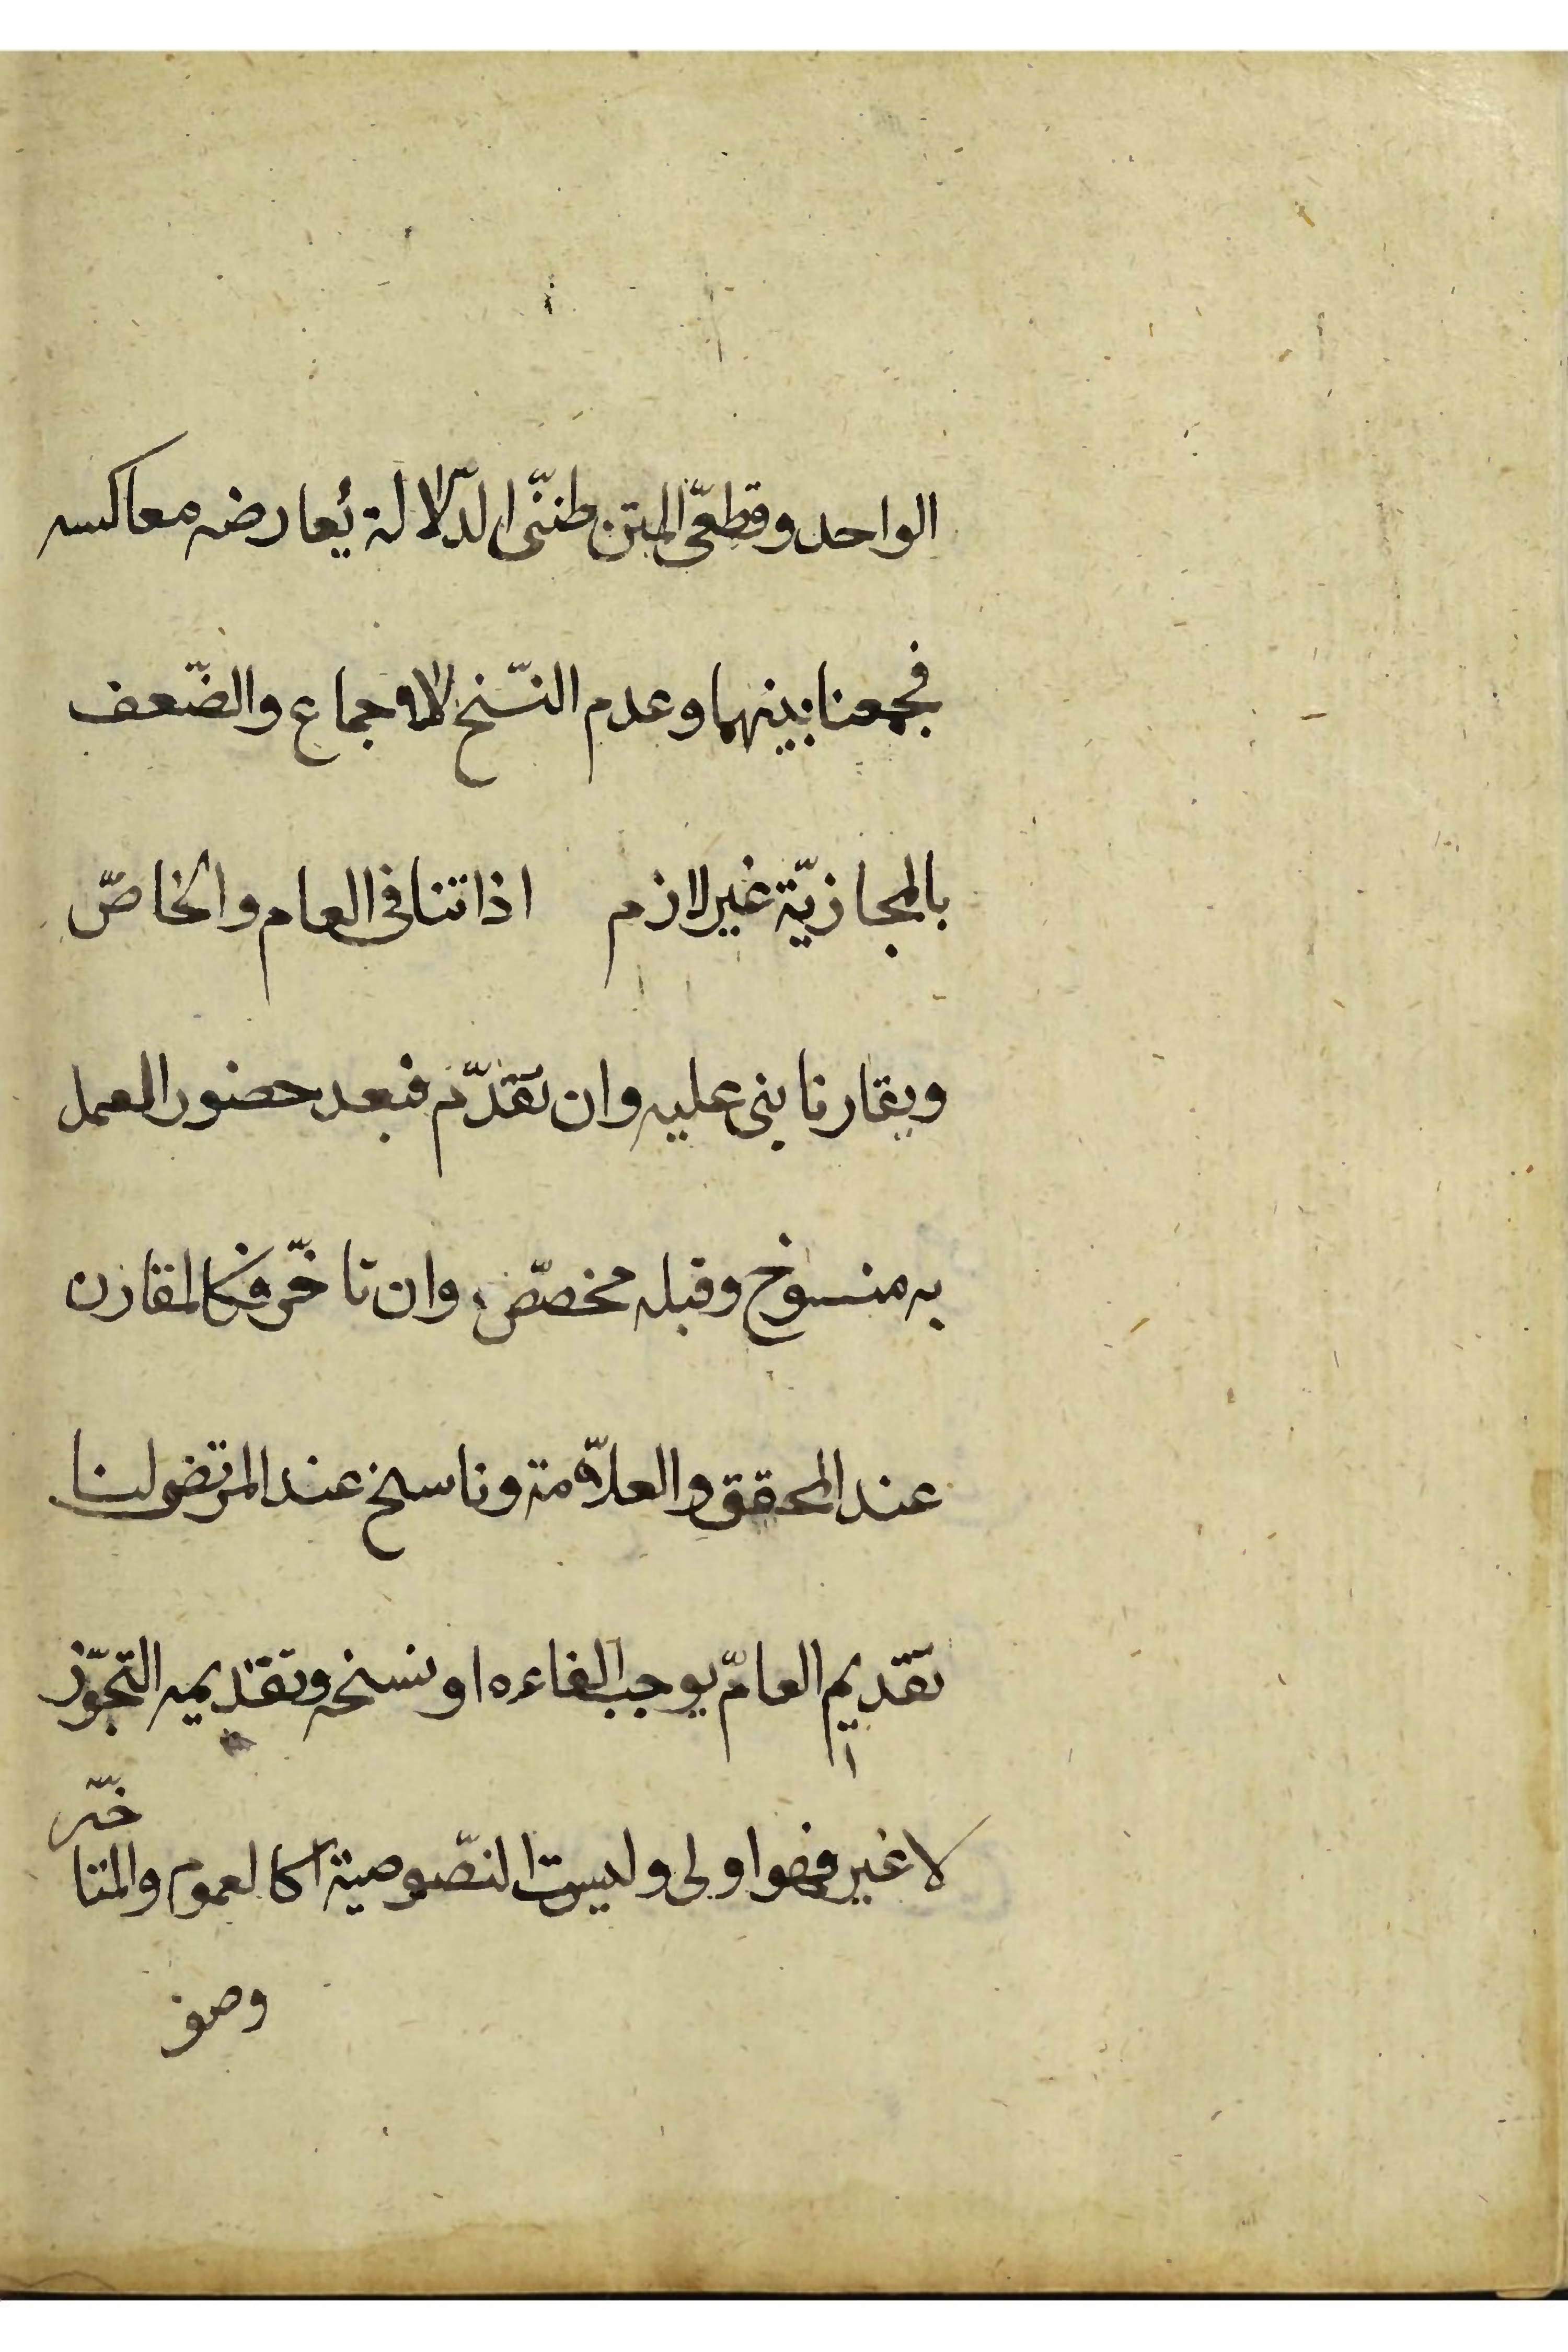 الواحد وقطعىّ المتن ظنّى الدّلالة يُعارضه معاكسه
فجمعنا بينهما وعدم النّسخ للاجماع والضّعف
بالمجازيّة غير لازم اذا تنافى العام والخاصّ
ويقارنا بنى عليه وان تقدّم فبعد حضور العمل
به منسوخ وقبله مخصّص وان تاخّر فكالمقارن
عند المحقق والعلّامة وناسخ عند المرتضى لنا
تقديم العامّ يوجب الغاءه او نسخه وتقديمه التجوّز
لا غير فهو اولى وليست الخصوصيّة كالعموم والمتاخّر